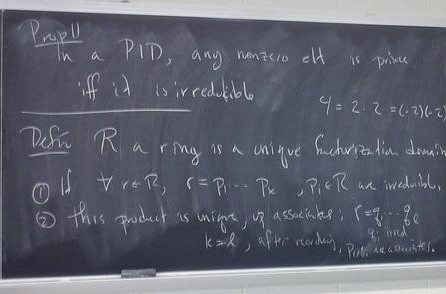 Prop 11
In a PID, any nonzero elt is prime
iff it is irreducible
4 = 2 · 2 = (-2)(-2)
Defn R a ring is a unique factorization domain
① If ∀ r∈R, r = P₁ ... Pₖ , Pᵢ∈R are irreducible
② this product is unique, up associates: r = q₁ ... qₗ
qᵢ irred
k = l, after reordering, are associates.